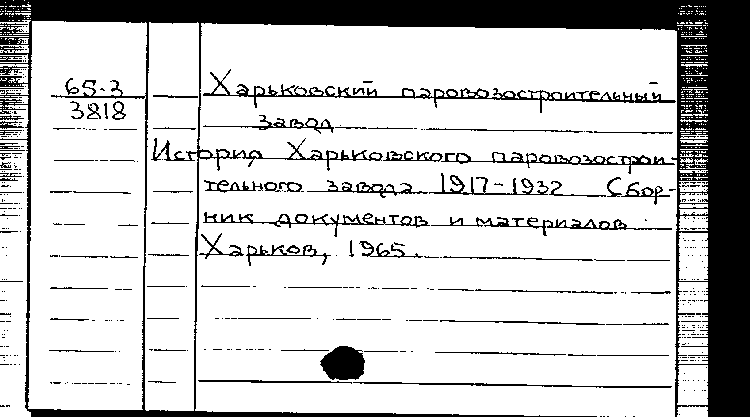 65-3
3818
Харьковский паровозостроительный
завод
История Харьковского паровозострои-
тельного завода 1917-1932 Сбор-
ник документов и материалов.
Харьков, 1965.